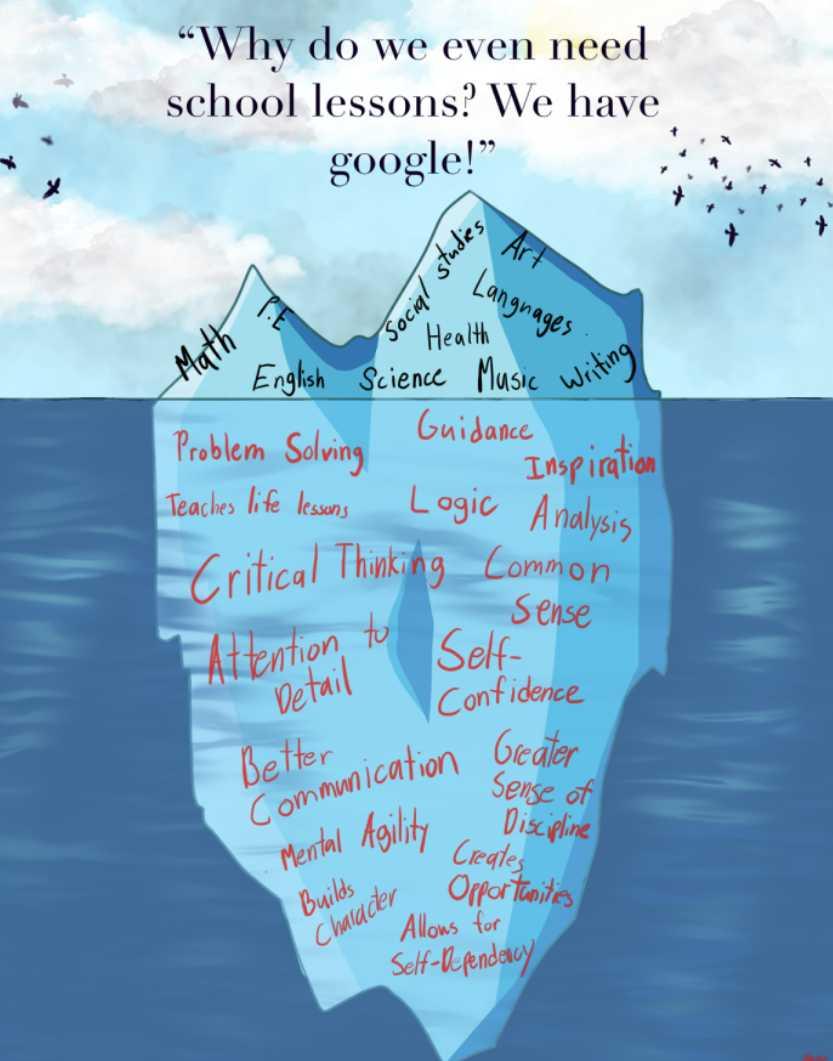 “Why do we even need
school lessons? We have
google!”
Math
P.E
Social studies
Art
Languages
Health
English
Science
Music
Writing
Problem Solving
Guidance
Inspiration
Teaches life lessons
Logic
Analysis
Critical Thinking
Common
Sense
Attention to
Detail
Self-
Confidence
Better
Communication
Greater
Sense of
Discipline
Mental Agility
Creates
Opportunities
Builds
Character
Allows for
Self-Dependency